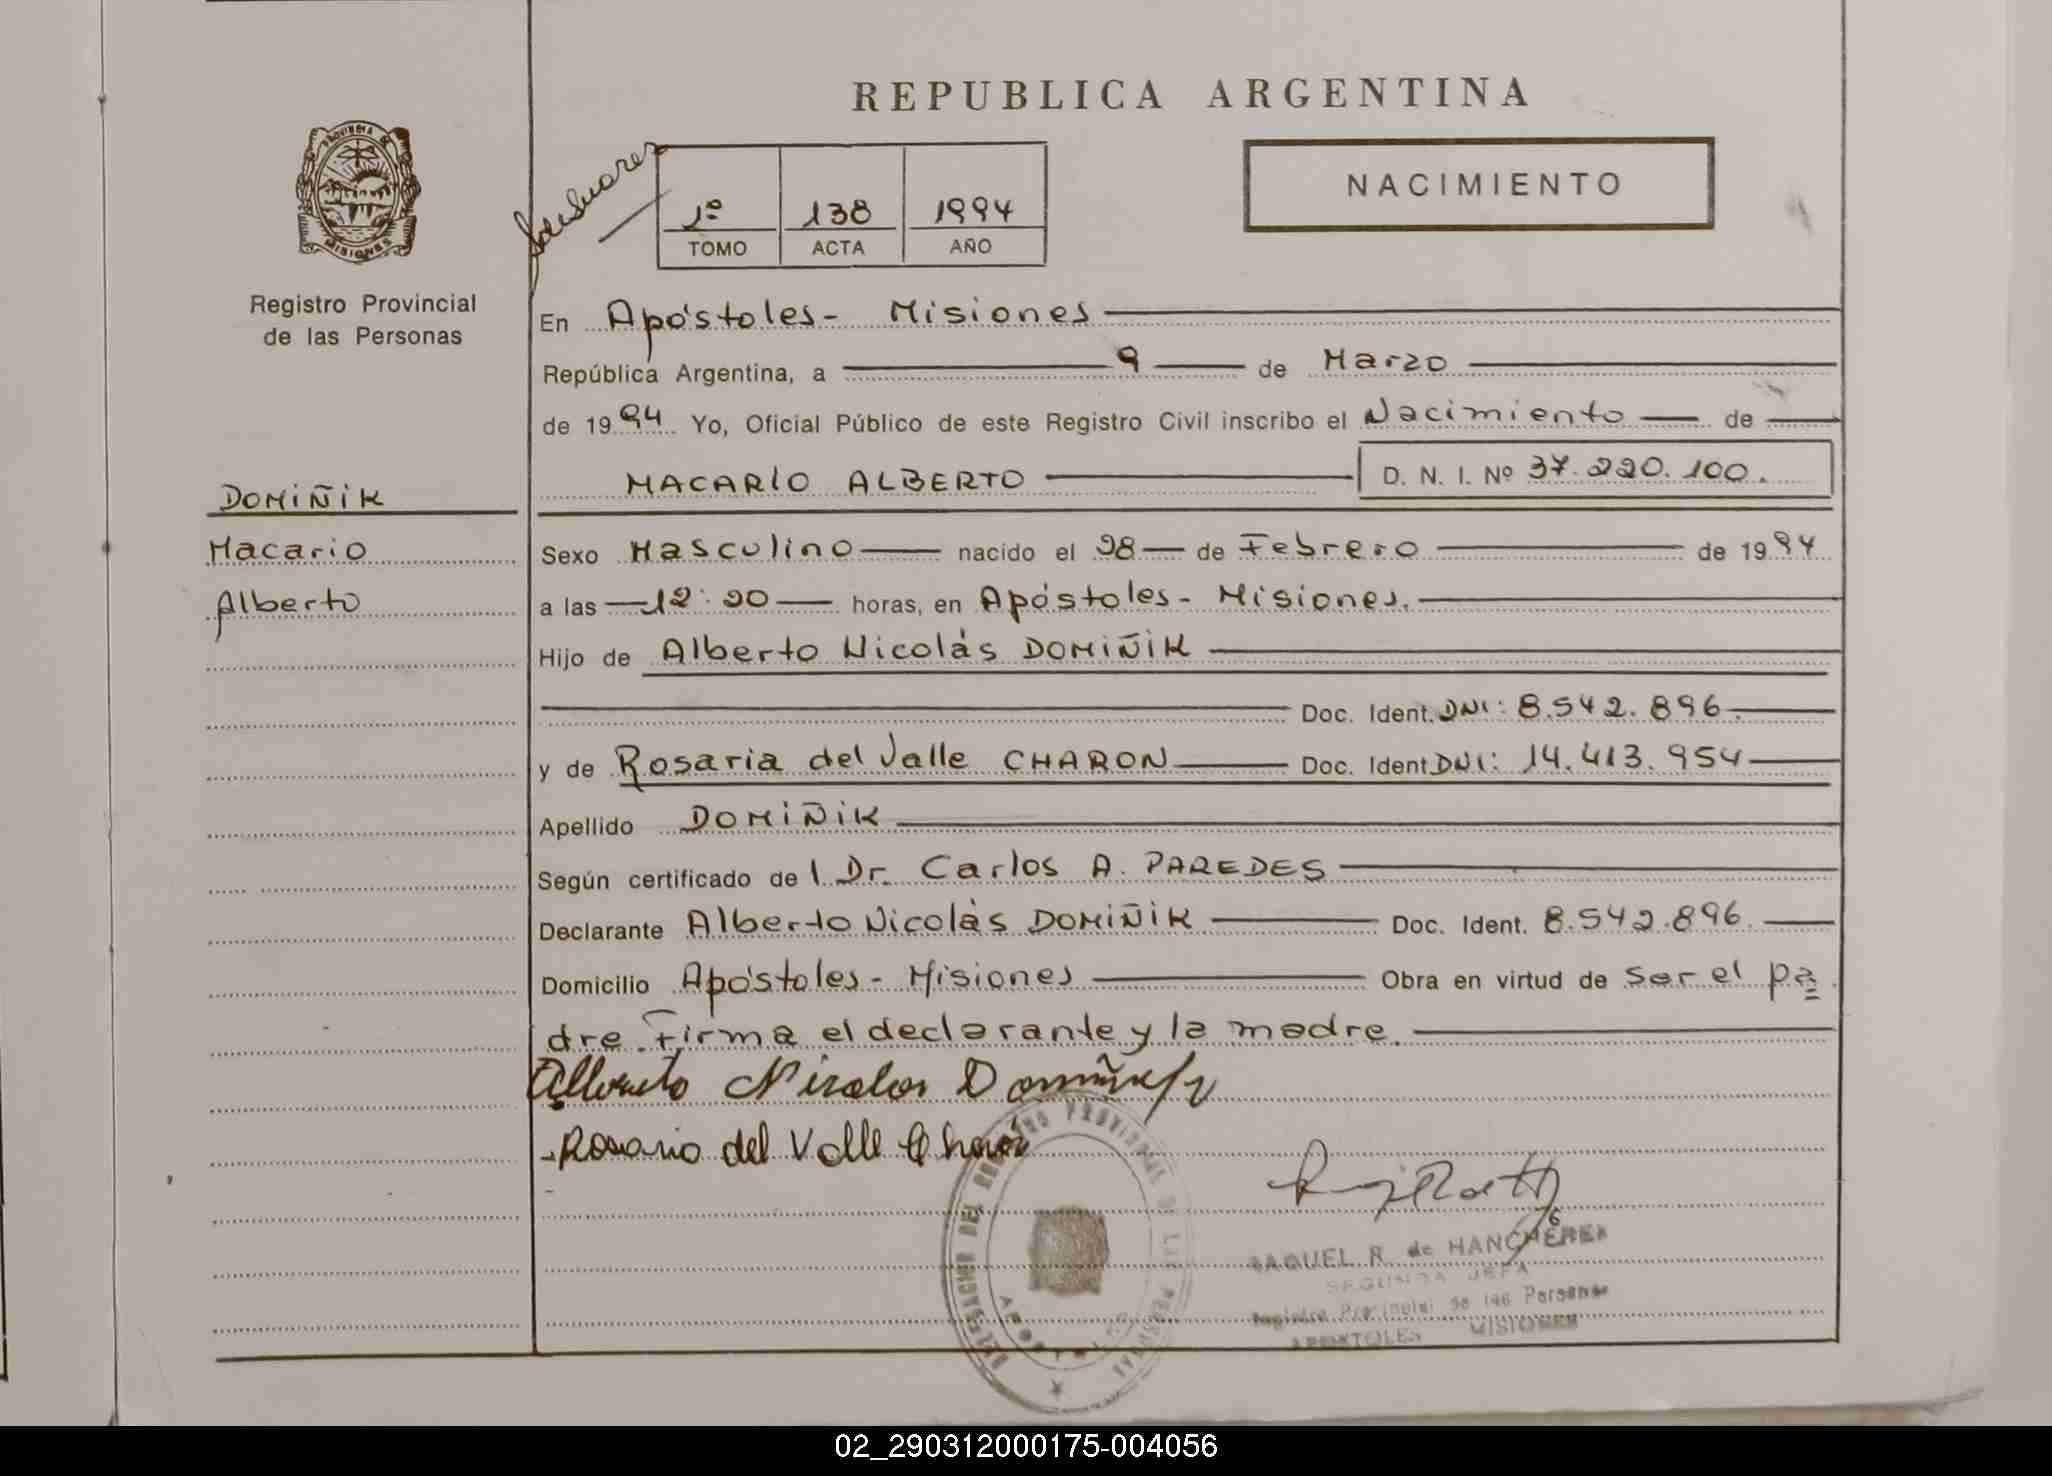 REPUBLICA ARGENTINA
NACIMIENTO
1º 138 1994
TOMO ACTA AÑO
PROVINCIA DE
MISIONES
Registro Provincial
de las Personas
En Apóstoles - Misiones
República Argentina, a 9 de Marzo
de 1994 Yo, Oficial Público de este Registro Civil inscribo el Nacimiento de
MACARIO ALBERTO D. N. I. Nº 37.220.100.
DOMIÑIK
Macario
Alberto
Sexo Masculino nacido el 28 de Febrero de 1994
a las 12:20 horas, en Apóstoles - Misiones.
Hijo de Alberto Nicolás DOMIÑIK
Doc. Ident. DNI: 8.542.896.
y de Rosaria del Valle CHARON Doc. Ident DNI: 14.413.954
Apellido DOMIÑIK
Según certificado de l Dr. Carlos A. PAREDES
Declarante Alberto Nicolás DOMIÑIK Doc. Ident. 8.542.896.
Domicilio Apóstoles - Misiones Obra en virtud de ser el pa
dre. Firma el declarante y la madre.
Alberto Nicolas Domiñik
Rosario del Valle Charon
RAQUEL R. de
SEGUNDA JEFA
Registro Provincial de las Personas
APOSTOLES MISIONES
02_290312000175-004056